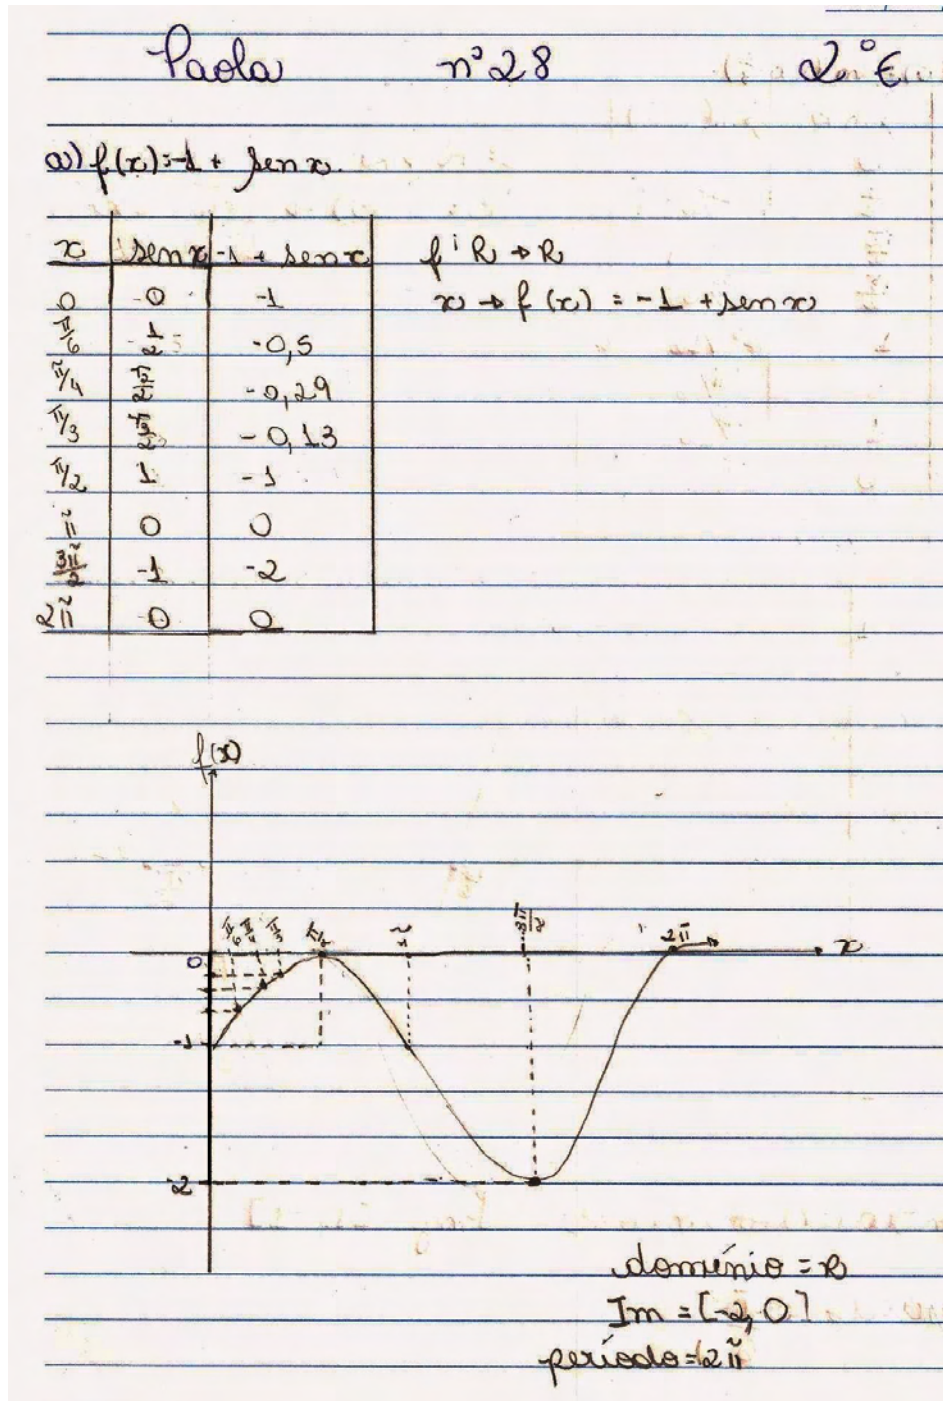 Paola nº 28 2º E
a) f(x)=-1 + sen x.
x sen x -1 + sen x f: R → R
0 0 -1 x → f(x) = -1 + sen x
π/6 1/2 -0,5
π/4 √2/2 -0,29
π/3 √3/2 -0,13
π/2 1 -1
π 0 0
3π/2 -1 -2
2π 0 0
f(x)
π/6 π/4 π/3 π/2 π 3π/2 2π
0 x
-1
-2
domínio = R
Im = [-2, 0]
período = 2π